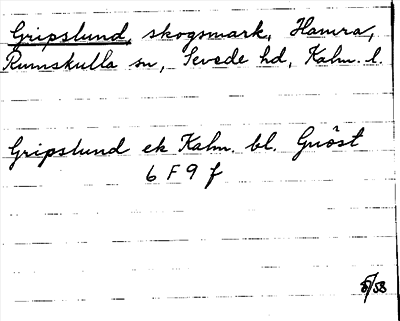 Gripslund, skogsmark, Hamra,
Rumskulla sn, Sevede hd, Kalm. l.
Gripslund ek Kalm. bl. Gnöst
6 F 9 f
/58